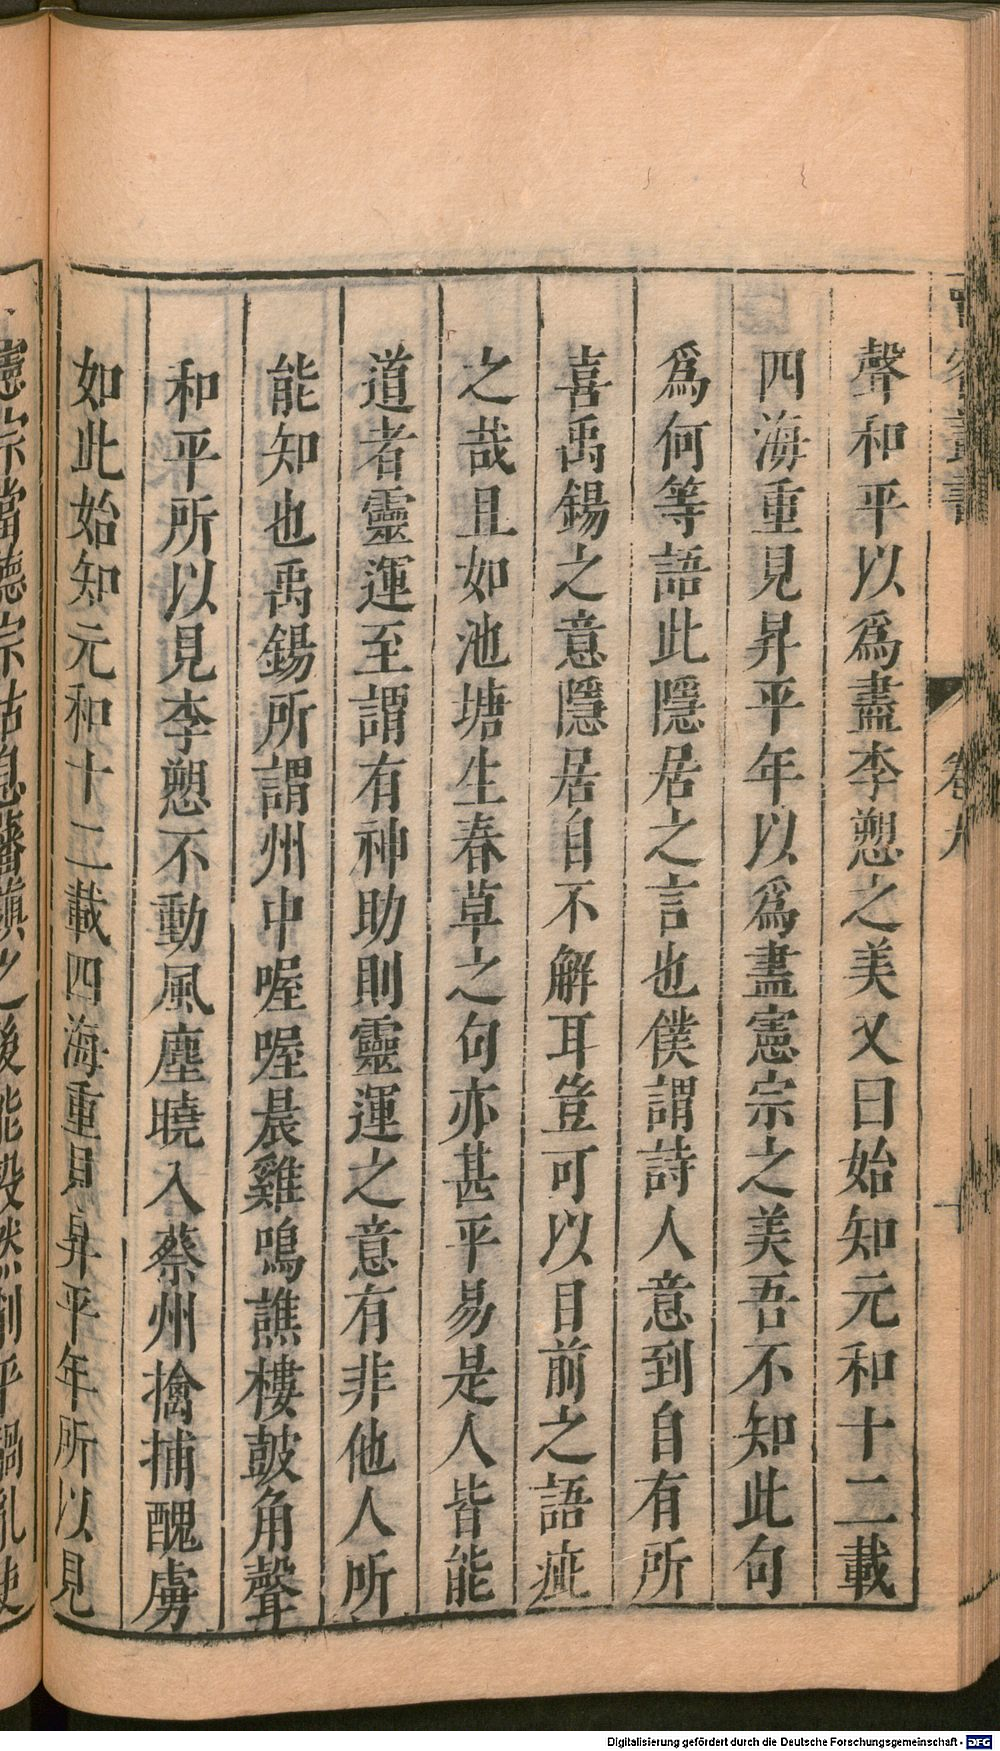 卷九
聲和平以爲盡李愬之美又曰始知元和十二載
四海重見昇平年以爲盡憲宗之美吾不知此句
爲何等語此隱居之言也僕謂詩人意到自有所
喜禹錫之意隱居自不解耳豈可以目前之語疵
之哉且如池塘生春草之句亦甚平易是人皆能
道者靈運至謂有神助則靈運之意有非他人所
能知也禹錫所謂州中喔喔晨雞鳴譙樓鼓角聲
和平所以見李愬不動風塵曉入蔡州擒捕醜虜
如此始知元和十二載四海重見昇平年所以見
憲宗當德宗姑息藩鎮之後能毅然削平禍亂使
Digitalisierung gefördert durch die Deutsche Forschungsgemeinschaft - DFG